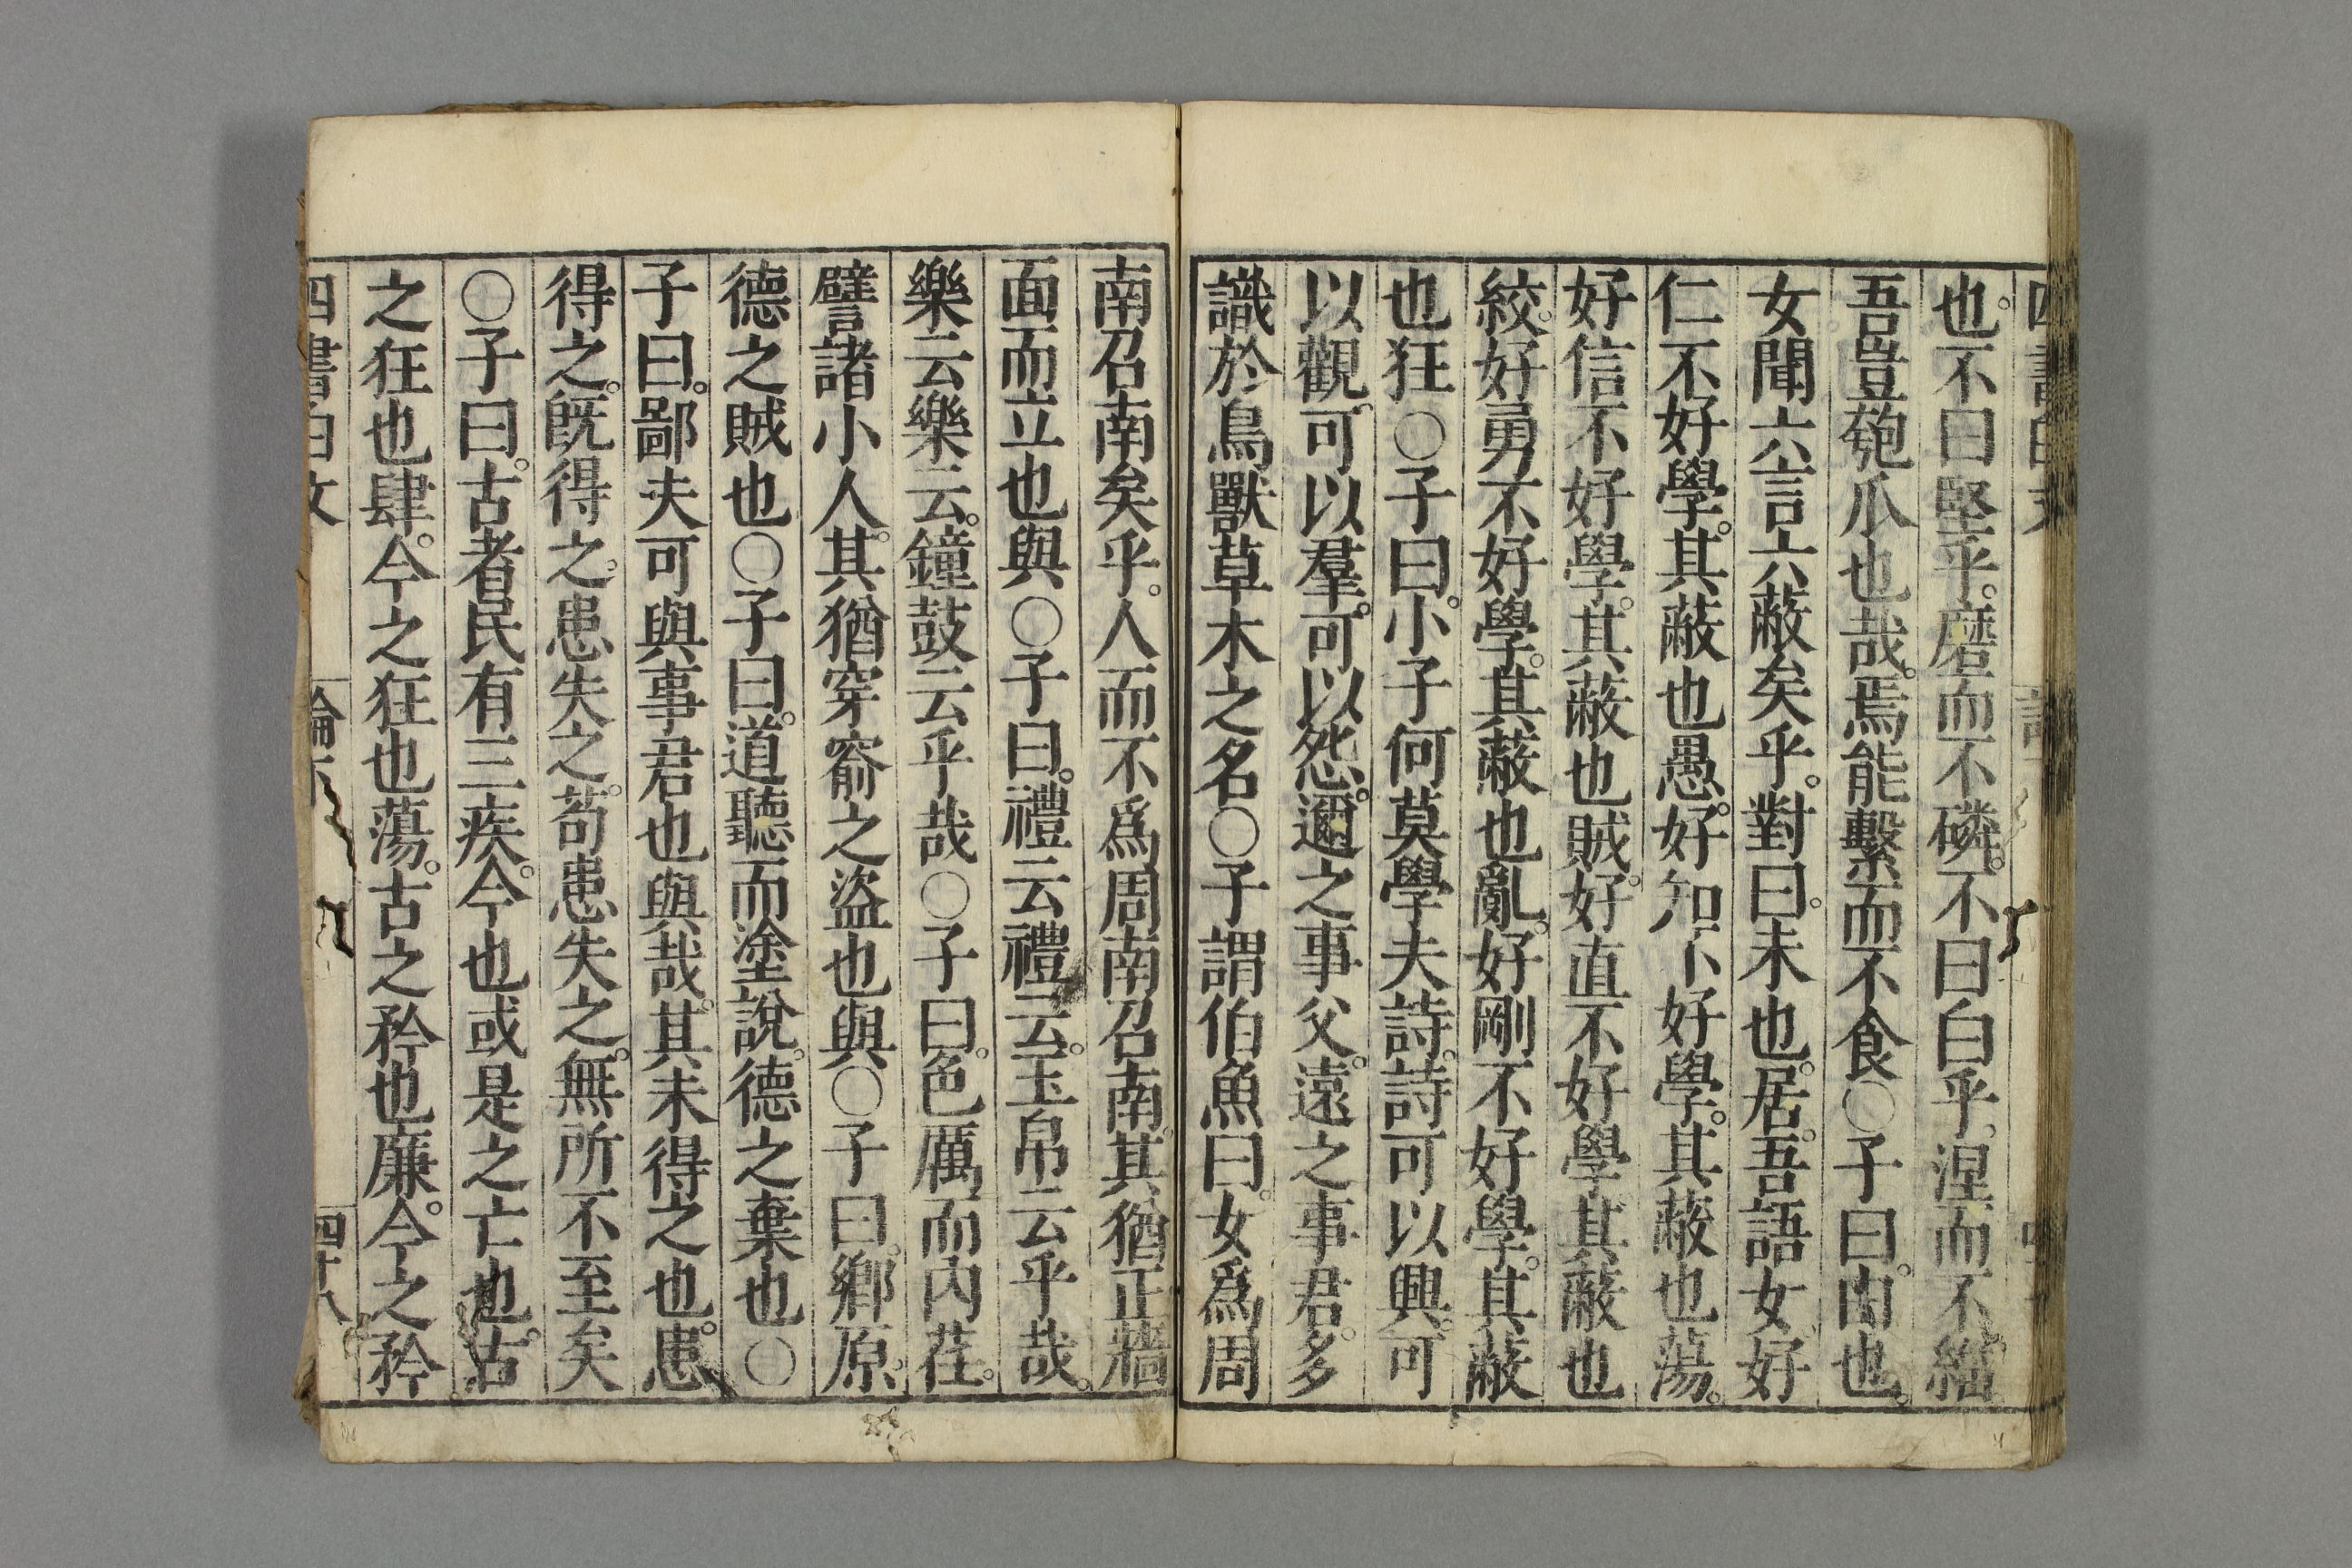 也。不曰堅乎。磨而不磷。不曰白乎。涅而不緇
吾豈匏瓜也哉。焉能繫而不食〇子曰。由也。
女聞六言六蔽矣乎。對曰。未也。居。吾語女。好
仁不好學。其蔽也愚。好知不好學。其蔽也蕩。
好信不好學。其蔽也賊。好直不好學。其蔽也
絞。好勇不好學。其蔽也亂。好剛不好學。其蔽
也狂〇子曰。小子何莫學夫詩。詩可以興。可
以觀。可以羣。可以怨。邇之事父。遠之事君。多
識於鳥獸草木之名〇子謂伯魚曰。女爲周
南召南矣乎。人而不爲周南召南。其猶正牆
面而立也與〇子曰。禮云禮云。玉帛云乎哉。
樂云樂云。鐘鼓云乎哉〇子曰。色厲而內荏。
譬諸小人。其猶穿窬之盜也與〇子曰。鄉原。
德之賊也〇子曰。道聽而塗說。德之棄也〇
子曰。鄙夫可與事君也與哉。其未得之也。患
得之。旣得之。患失之。苟患失之。無所不至矣
〇子曰。古者民有三疾。今也或是之亡也。古
之狂也肆。今之狂也蕩。古之矜也廉。今之矜
四書白文 論下 四十八